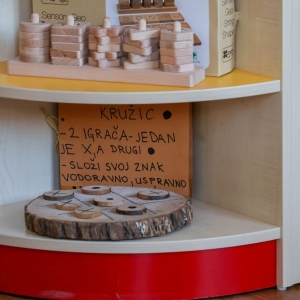 Sensor
Geo
Shape
KRUŽIĆ
- 2 IGRAČA - JEDAN
JE X, A DRUGI ●
- SLOŽI SVOJ ZNAK
VODORAVNO, USPRAVNO